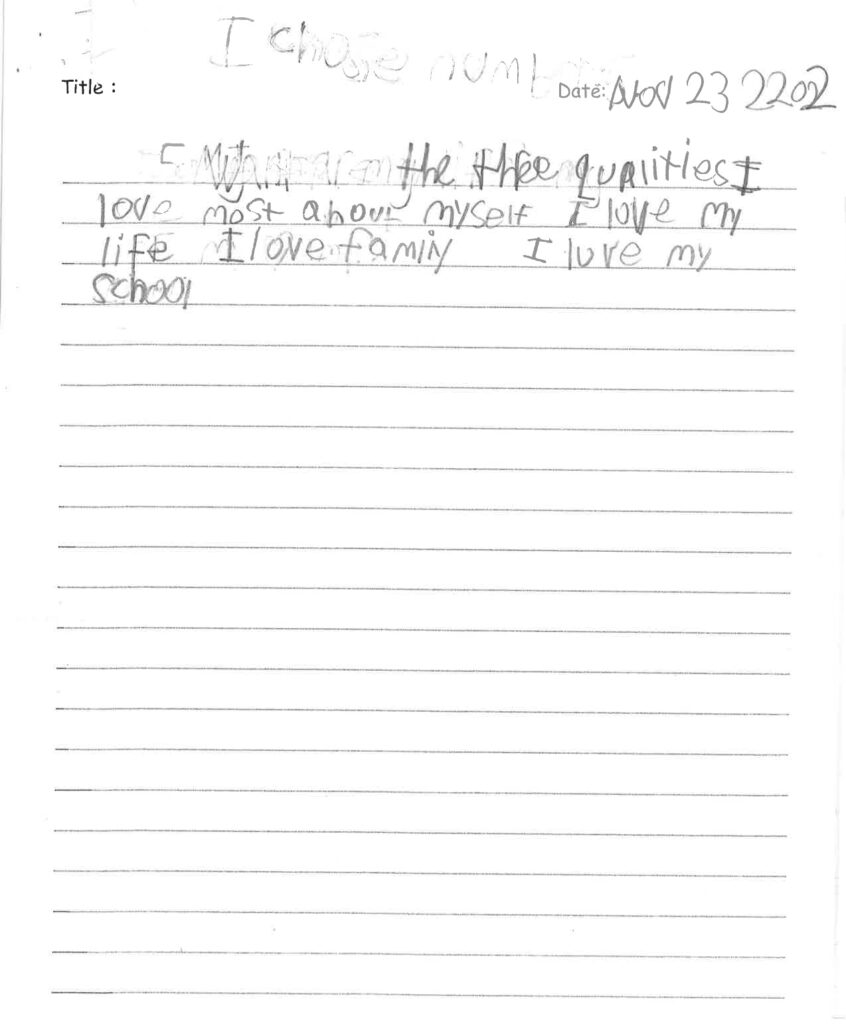 I chose num
Title :
Date: Nov 23 2202
the three qualities I
love most about myself I love my
life I love family I love my
school